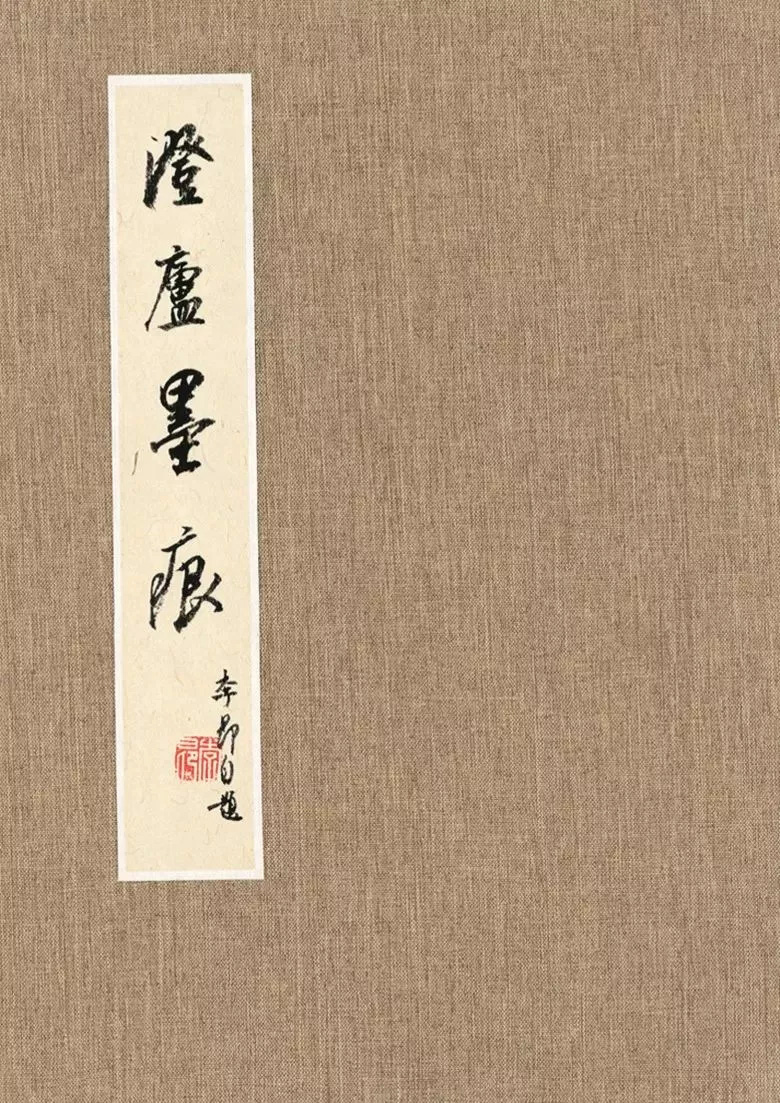 澄廬墨痕
李自題